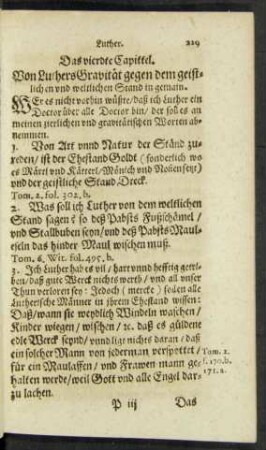 Luther. 229
Das vierdte Capittel.
Von Luthers Gravität gegen dem geist-
lichen und weltlichen Stand in gemain.
WEr es nicht vorhin wüßte/ daß ich Luther ein
Doctor über alle Doctor bin/ der soll es an
meinen zierlichen und gravitätischen Worten ab-
nemmen.
1. Von Art vnnd Natur der Ständ zu-
reden/ ist der Ehestand Goldt (sonderlich wo
es Märtl vnd Kätterl/ Münich vnd Nonen seyn)
vnd der geistliche Stand, Dreck.
Tom. 2. fol. 302. b.
2. Was soll ich Luther von dem weltlichen
Stand sagen? so deß Pabsts Fußschämel/
vnd Stallbuben seyn/ vnd deß Pabsts Maul-
eseln das hinder Maul wischen muß.
Tom. 6. Wit. fol. 495. b.
3. Ich Luther hab es vil/ hart vnnd hefftig getri-
ben/ daß gute Werck nichts werth/ vnd all vnser
Thun verloren sey: Jedoch (mercke) sollen alle
Lutherische Männer in jhrem Ehestand wissen:
Daß/ wann sie weydlich Windeln waschen/
Kinder wiegen/ wischen/ ꝛc. daß es güldene
edle Werck seynd/ vnnd ligt nichts daran/ daß
ein solcher Mann von jederman verspottet/
für ein Maulaffen/ vnd Frawen mann ge-
halten werde/ weil Gott vnd alle Engel dar-
zu lachen.
Tom. 2.
f. 170. b.
171. a.
P iij Das